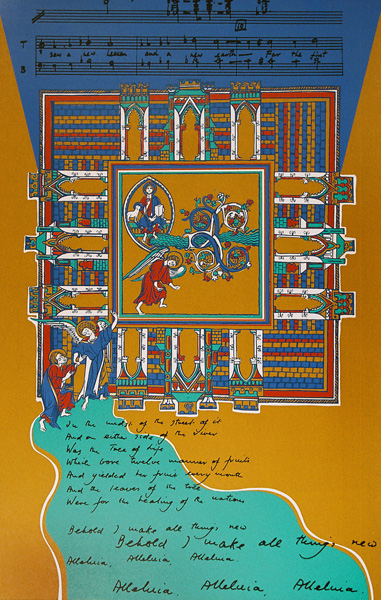 18
T saw a new heaven and a new earth For the first
B
In the midst of the street of it
And on either side of the river
Was the Tree of Life
Which bore twelve manner of fruits
And yielded her fruit every month
And the leaves of the tree
Were for the healing of the nations
Behold I make all things new
Behold I make all things new
Alleluia, Alleluia, Alleluia.
Alleluia, Alleluia, Alleluia.